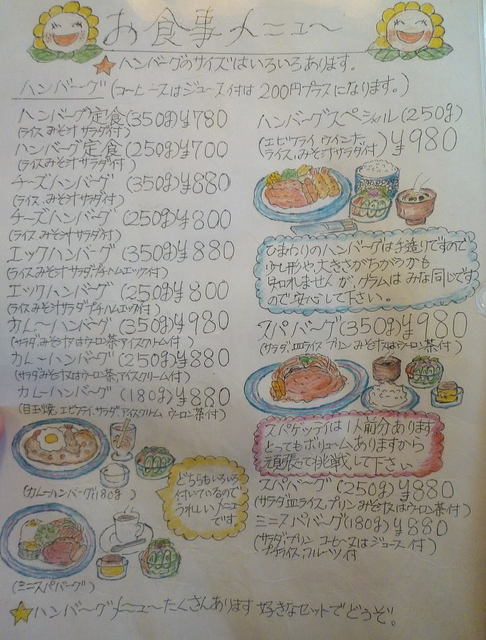 お食事メニュー
★ハンバーグのサイズはいろいろあります。
ハンバーグ(コーヒー又はジュース付は200円プラスになります。)
ハンバーグ定食(350g)¥780
(ライス、みそ汁サラダ付)
ハンバーグ定食(250g)¥700
(ライス、みそ汁サラダ付)
チーズハンバーグ(350g)¥880
(ライス、みそ汁サラダ付)
チーズハンバーグ(250g)¥800
(ライス、みそ汁サラダ付)
エッグハンバーグ(350g)¥880
(ライスみそ汁サラダ、ハムエッグ付)
エッグハンバーグ(250g)¥800
(ライスみそ汁サラダ、ハムエッグ付)
カレーハンバーグ(350g)¥980
(サラダみそ汁又はウーロン茶、アイスクリーム付)
カレーハンバーグ(250g)¥880
(サラダみそ汁又はウーロン茶、アイスクリーム付)
カレーハンバーグ(180g)¥880
(目玉焼、エビフライ、サラダ、アイスクリーム、ウーロン茶付)
(カレーハンバーグ180g)
どちらもいろいろ
付いているので
うれしいメニュー
です
(ミニスパバーグ)
ハンバーグスペシャル(250g)
(エビフライ、ウインナー、
ライス、みそ汁サラダ付)¥980
ひまわりのハンバーグは手造りですので
少し形や大きさがちがうかも
しれませんが、グラムはみな同じです
ので安心して下さい。
スパバーグ(350g)¥980
(サラダ、皿ライス、プリン、みそ汁又はウーロン茶付)
スパゲッティは1人前分あります
とってもボリュームありますから
頑張って挑戦して下さい
スパバーグ(250g)¥880
(サラダ皿ライス、プリン、みそ汁又はウーロン茶付)
ミニスパバーグ(180g)¥880
(サラダ、プリン、コーヒー又はジュース付)
プチライス、フルーツ付
★ハンバーグメニューたくさんあります好きなセットでどうぞ。